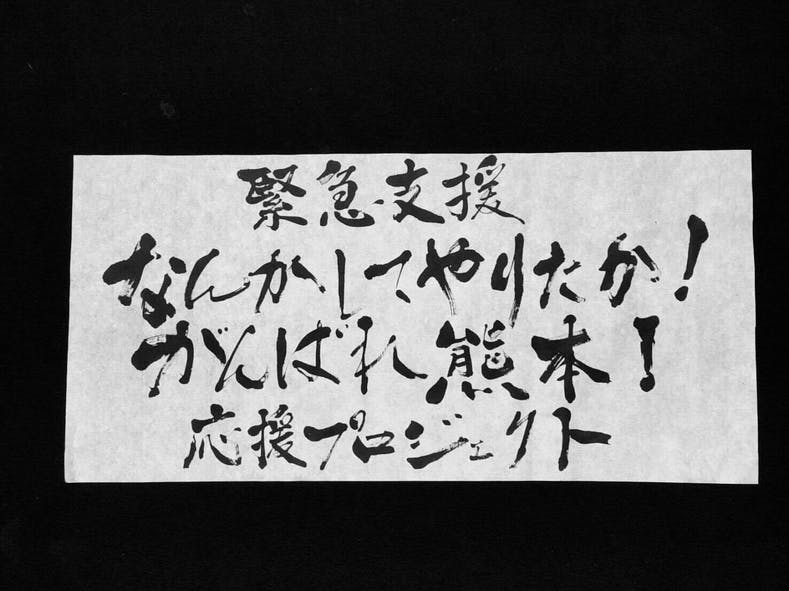 緊急支援
なんかしてやりたか！
がんばれ熊本！
応援プロジェクト